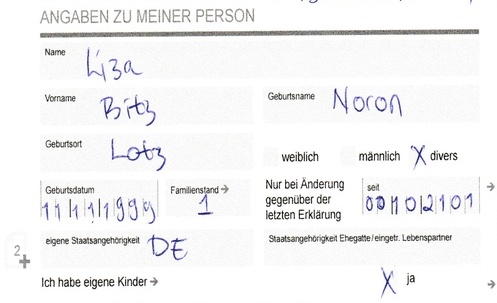 ANGABEN ZU MEINER PERSON
Name Liza
Vorname Bitz Geburtsname Noron
Geburtsort Lotz weiblich männlich X divers
Geburtsdatum 11111999 Familienstand → 1 Nur bei Änderung gegenüber der letzten Erklärung seit 00102101 →
2+ eigene Staatsangehörigkeit DE Staatsangehörigkeit Ehegatte/eingetr. Lebenspartner
Ich habe eigene Kinder → X ja →